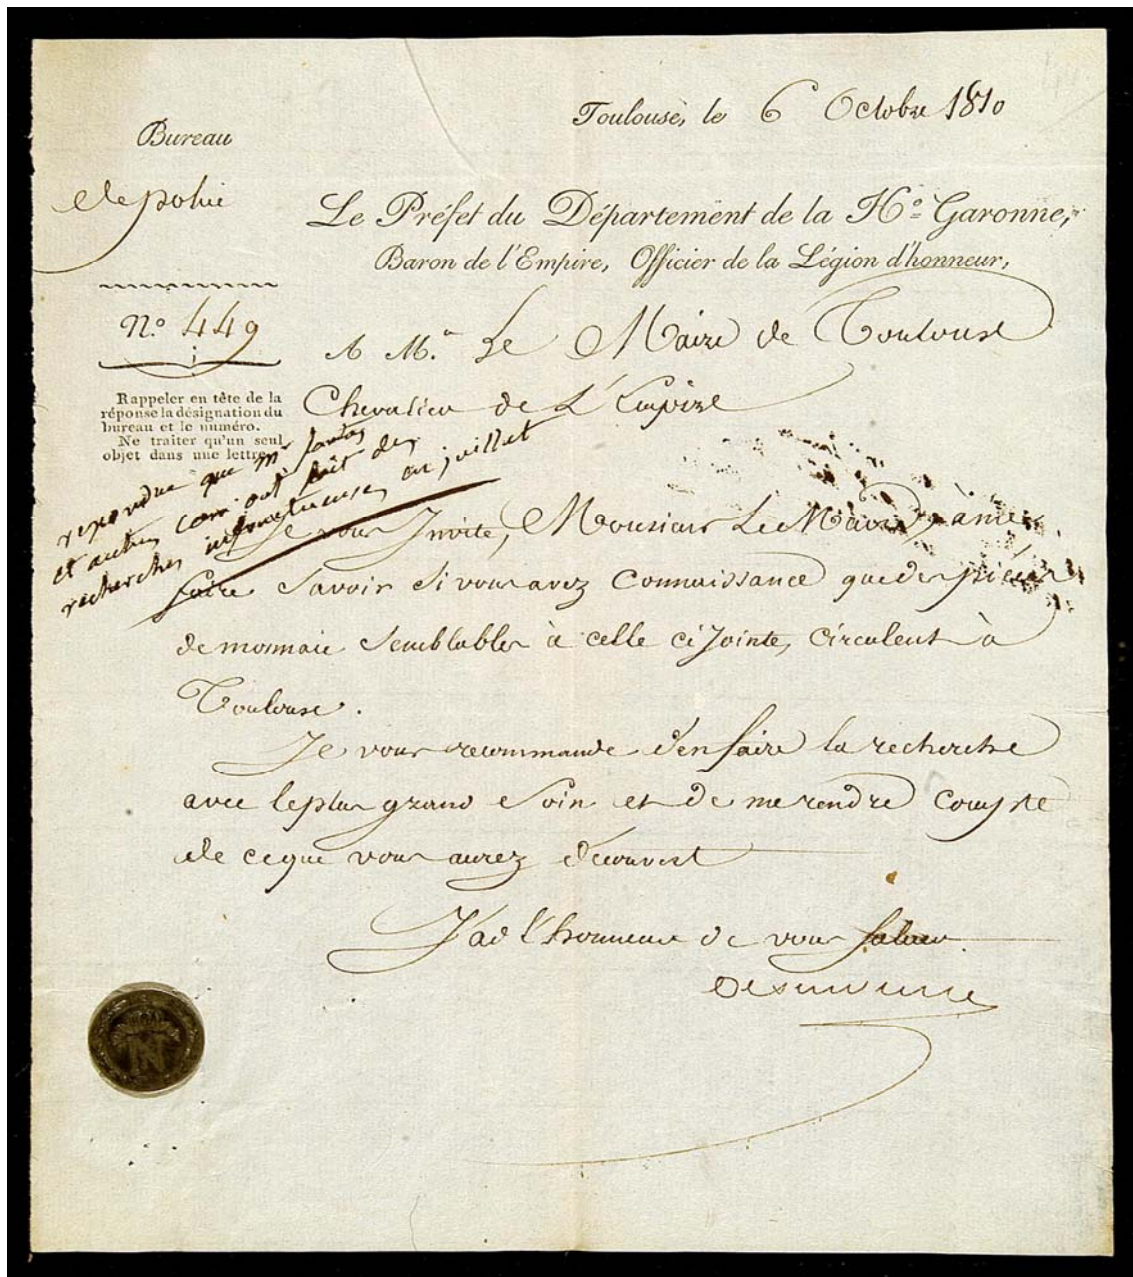 Toulouse, le 6 Octobre 1810
Bureau
de police
N.º 449
Rappeler en tête de la
réponse la désignation du
bureau et le numéro.
Ne traiter qu'un seul
objet dans une lettre.
Le Préfet du Département de la H.te Garonne,
Baron de l'Empire, Officier de la Légion d'honneur,
A M.r Le Maire de Toulouse
Chevalier de L'Empire
repondre que mr
et autres com ont fait des
recherches infructueuses en juillet
Je vous Invite, Monsieur Le Maire, à me
faire Savoir Si vous avez Connaissance que des pièces
de monnaie Semblables à celle ci Jointe, Circulent à
Toulouse.
Je vous recommande d'en faire la recherche
avec le plus grand Soin et de me rendre Compte
de ce que vous aurez découvert
J'ai l'honneur de vous Saluer.
N